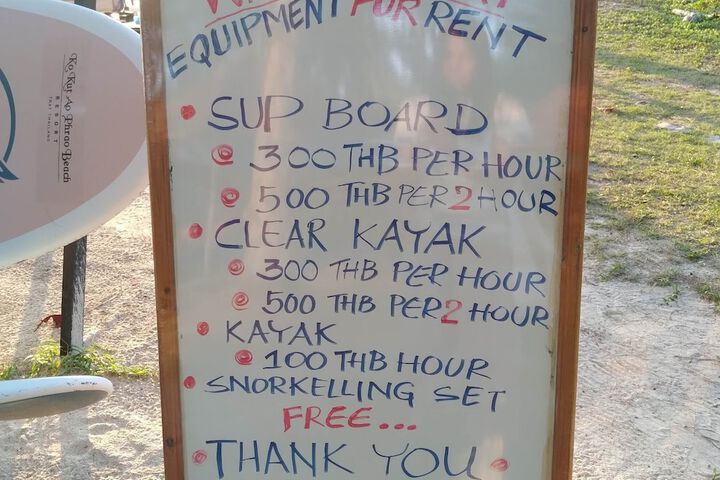 EQUIPMENT FUR RENT
• SUP BOARD
• 300 THB PER HOUR
• 500 THB PER 2 HOUR
• CLEAR KAYAK
• 300 THB PER HOUR
• 500 THB PER 2 HOUR
• KAYAK
• 100 THB HOUR
• SNORKELLING SET
FREE...
• THANK YOU •
Ko Kut Ao Phrao Beach
RESORT
TRAT THAILAND